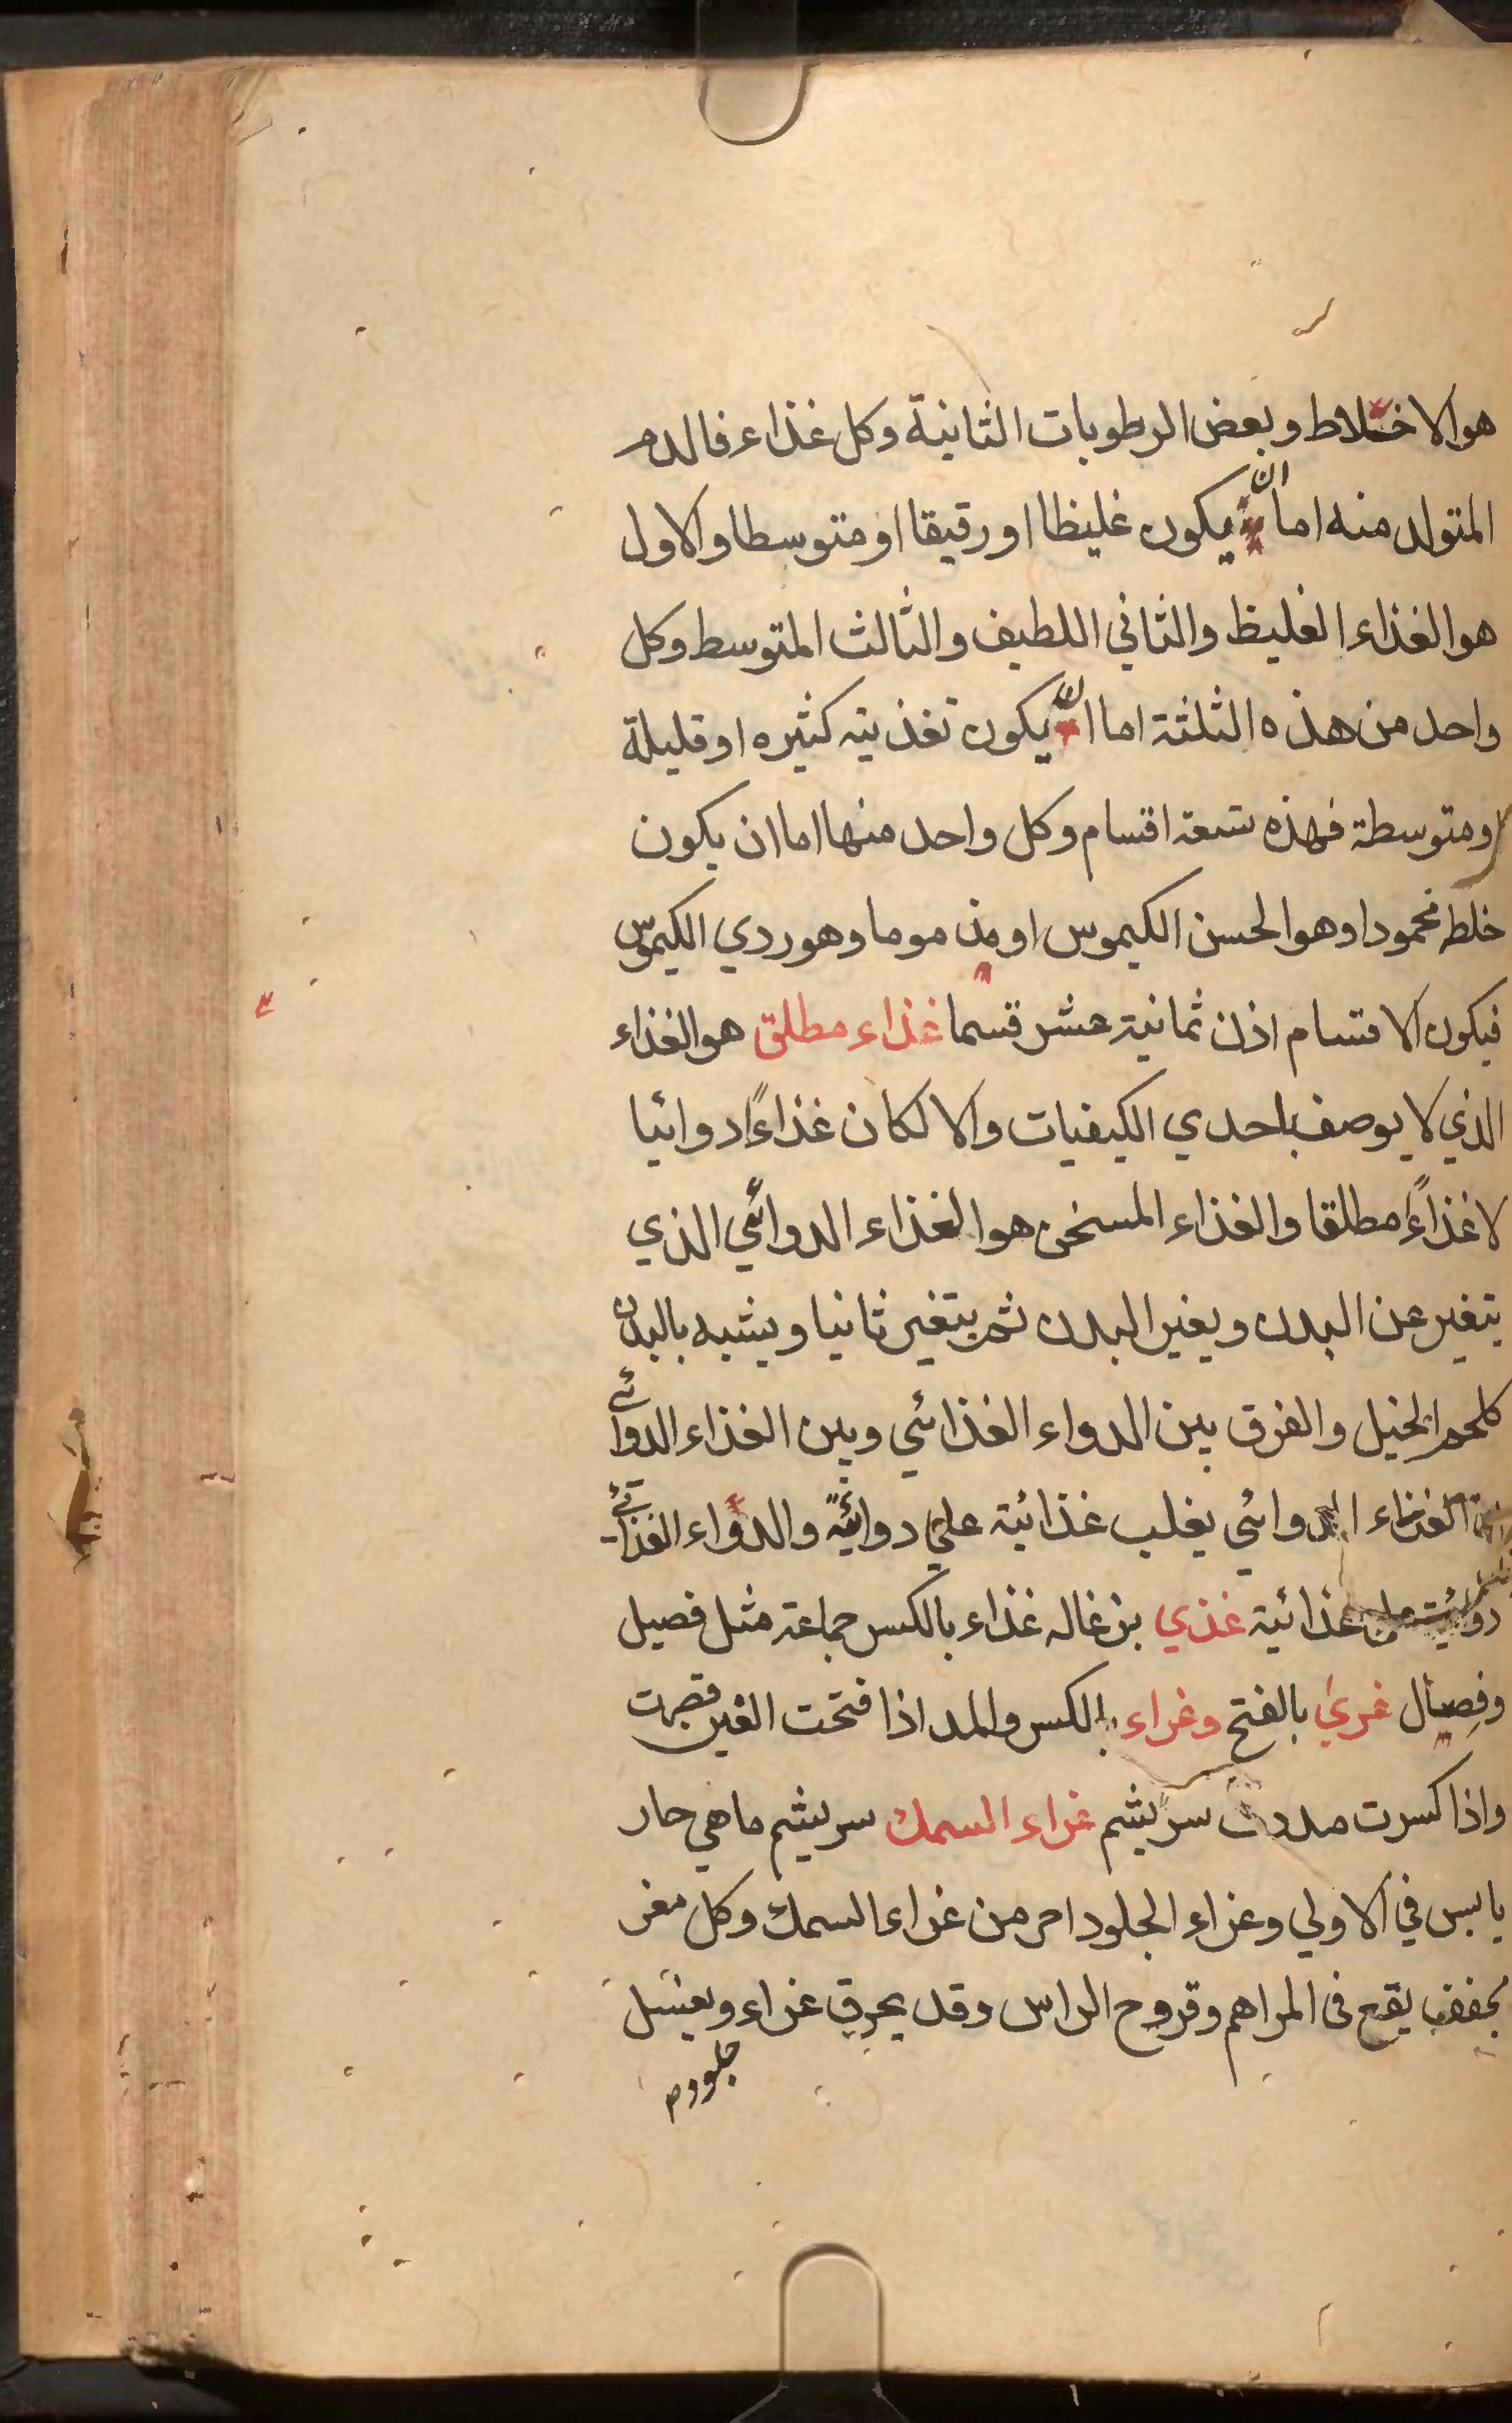 هو الاخلاط وبعض الرطوبات الثانية وكل غذاء فالدم
المتولد منه اما ان يكون غليظا او رقيقا او متوسطا والاول
هو الغذاء الغليظ والثاني اللطيف والثالث المتوسط وكل
واحد من هذه الثلثة اما ان يكون تغذيته كثيره او قليلة
او متوسطة فهذه تسعة اقسام وكل واحد منها اما ان يكون
خلطه محمودا وهو الحسن الكيموس او مذموما وهو ردي الكيموس
فيكون الاقسام اذن ثمانية عشر قسما غذاء مطلق هو الغذاء
الذي لا يوصف باحدي الكيفيات والا لكان غذاءً دوائيا
لا غذاءً مطلقا والغذاء المسخن هو الغذاء الدوائي الذي
يتغير عن البدن ويغير البدن ثم يتغير ثانيا ويشبه بالبدن
كلحم الخيل والفرق بين الدواء الغذائي وبين الغذاء الدوائي
الغذاء الدوائي يغلب غذائية علي دوائية والدواء الغذائي
دوائيت علي غذائية غذي بزغاله غذاء بالكسر جماعة مثل فصيل
وفصال غري بالفتح وغراء بالكسر والمد اذا فتحت الغين قصرت
واذا كسرت مددت سريشم غراء السمك سريشم ماهي حار
يابس في الاولي وغراء الجلود احر من غراء السمك وكل مغر
مجفف يقع فى المراهم وقروح الراس وقد يحرق غراء ويغسل
جلودم